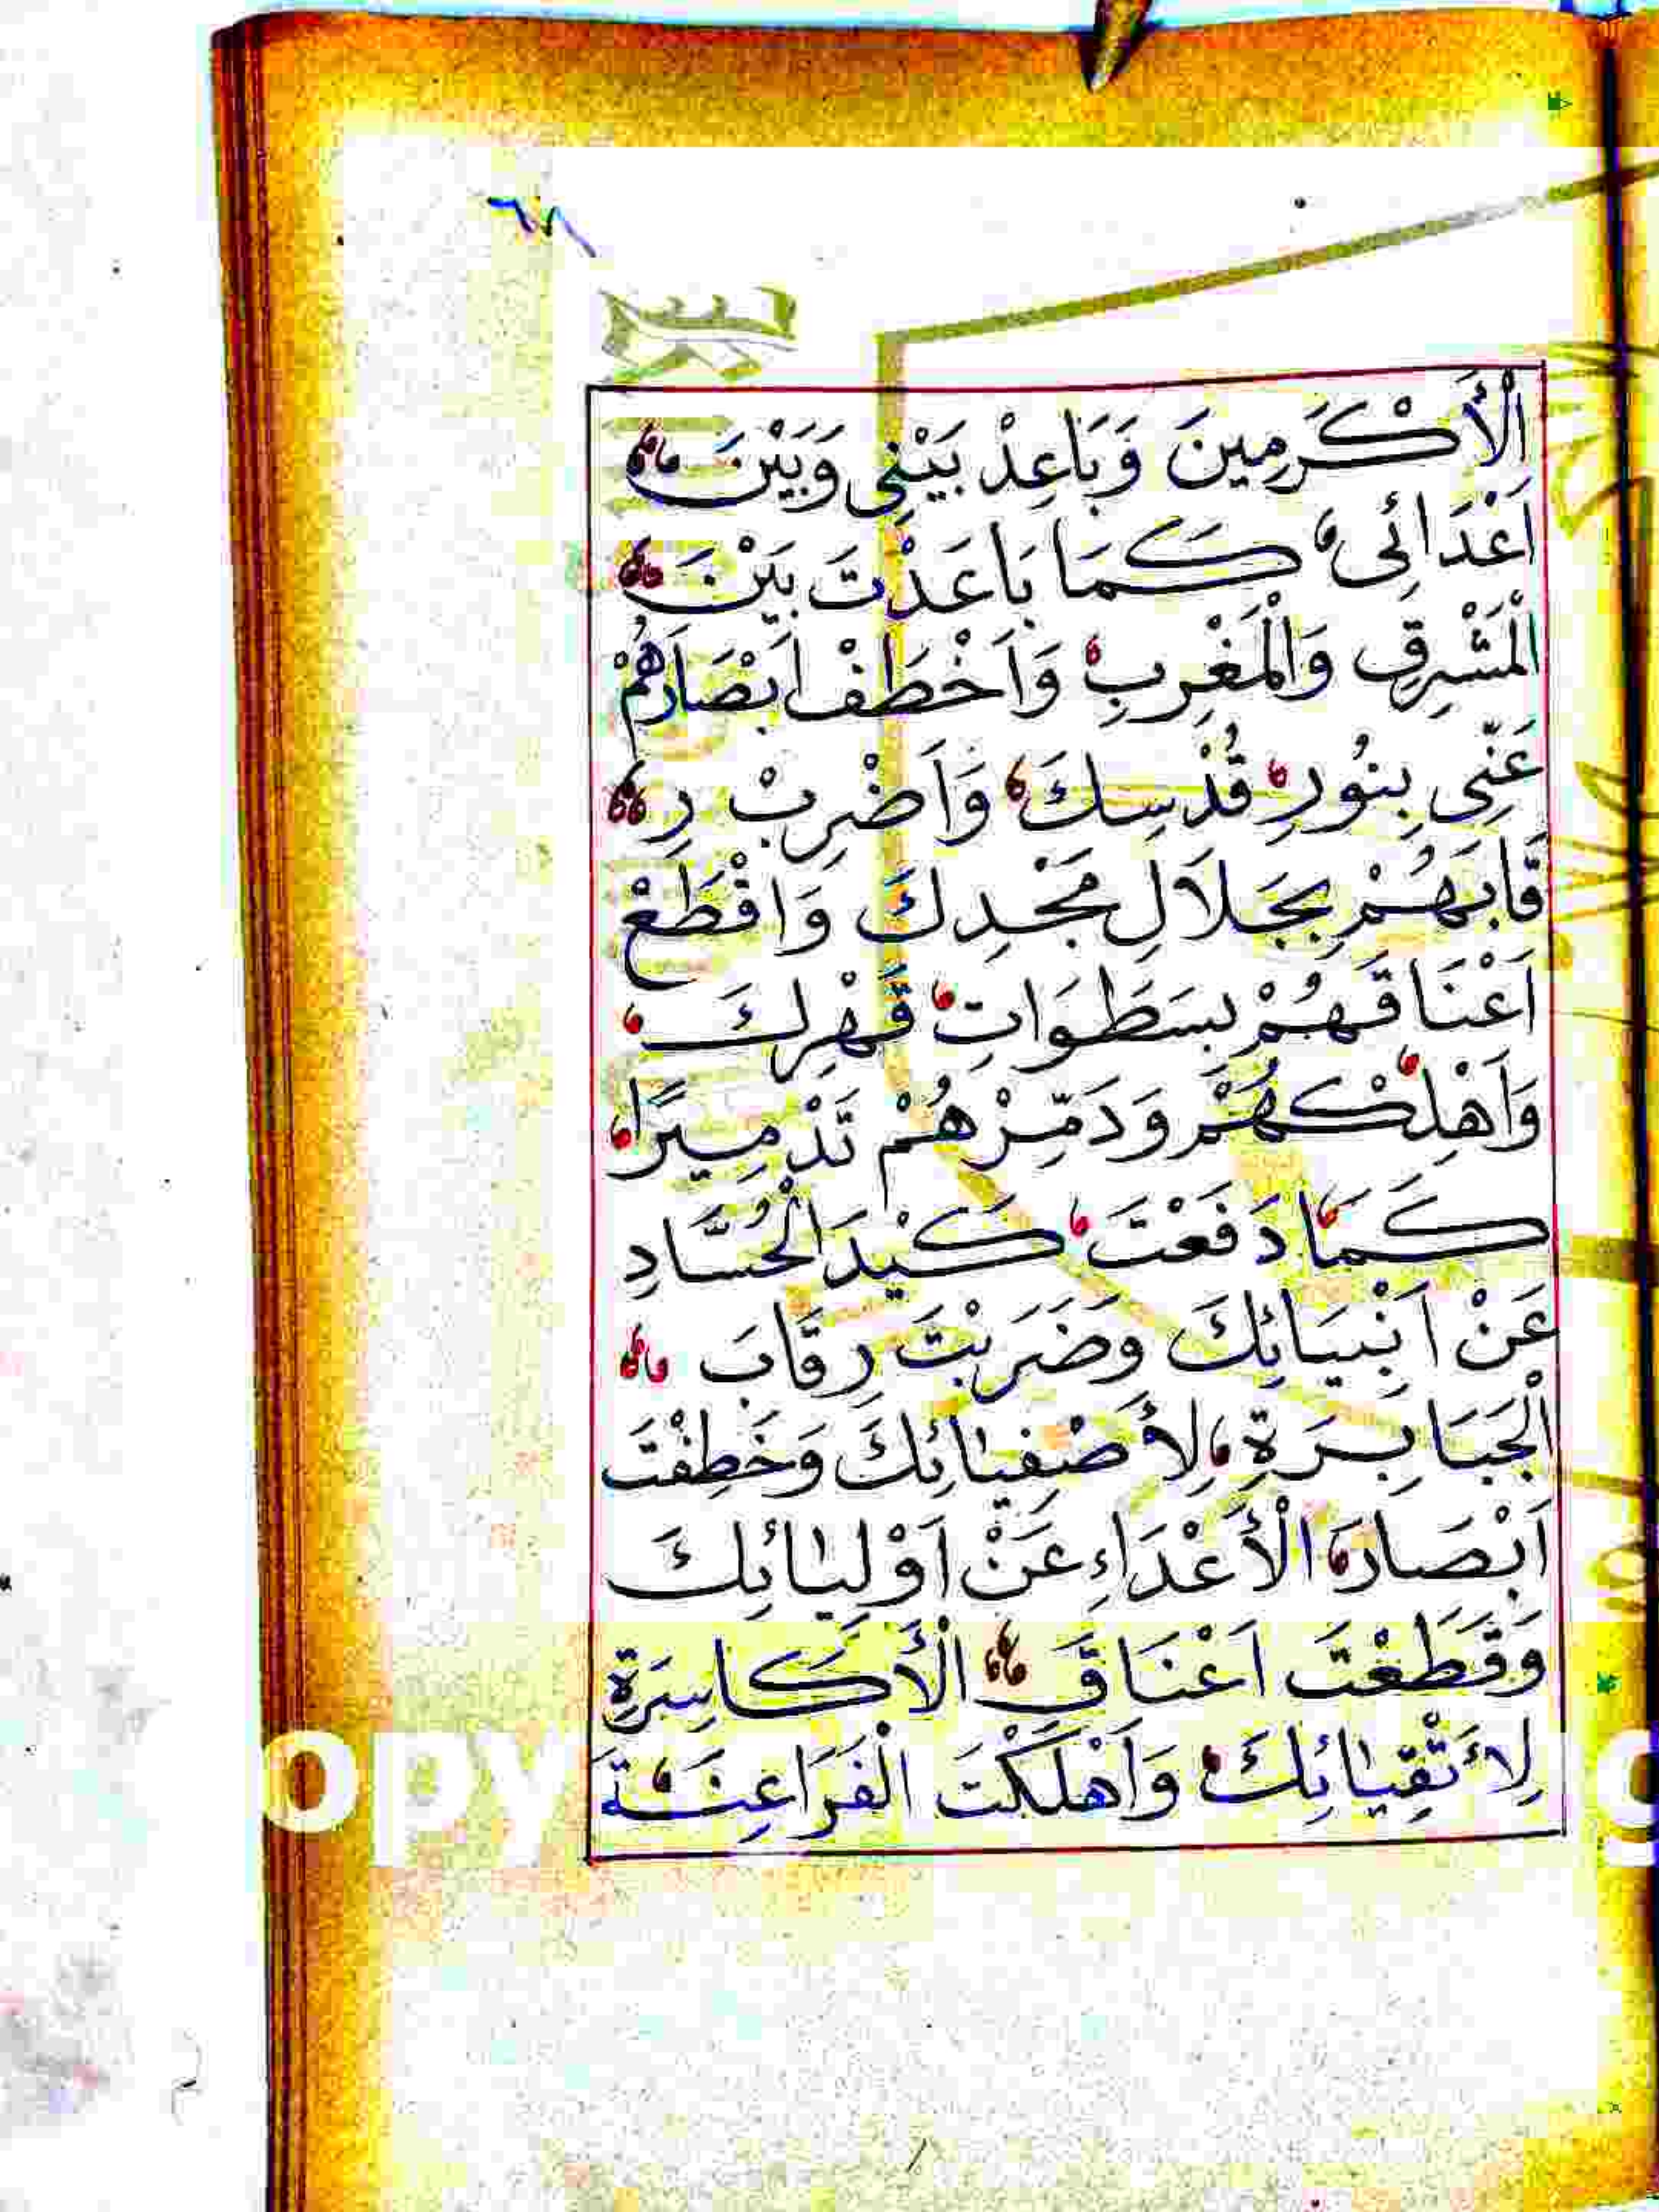 ٦٨
الْأَكْرَمِينَ وَبَاعِدْ بَيْنِي وَبَيْنَ
اَعْدَائِي كَمَا بَاعَدْتَ بَيْنَ
الْمَشْرِقِ وَالْمَغْرِبِ وَاَخْطَفْ اَبْصَارَهُمْ
عَنِّي بِنُورِ قُدْسِكَ وَاَضْرِبْ رِ
قَابَهُمْ بِجَلَالِ مَجْدِكَ وَاقْطَعْ
اَعْنَاقَهُمْ بِسَطَوَاتِ قَهْرِكَ
وَاَهْلِكْهُمْ وَدَمِّرْهُمْ تَدْمِيرًا
كَمَا دَفَعْتَ كَيْدَ الْحُسَّادِ
عَنْ اَنْبِيَائِكَ وَضَرَبْتَ رِقَابَ
الْجَبَابِرَةِ لِأَصْفِيَائِكَ وَخَطِفْتَ
اَبْصَارَ الْأَعْدَاءِ عَنْ اَوْلِيَائِكَ
وَقَطَعْتَ اَعْنَاقَ الْأَكَاسِرَةِ
لِأَتْقِيَائِكَ وَاَهْلَكْتَ الْفَرَاعِنَةَ
opy
g